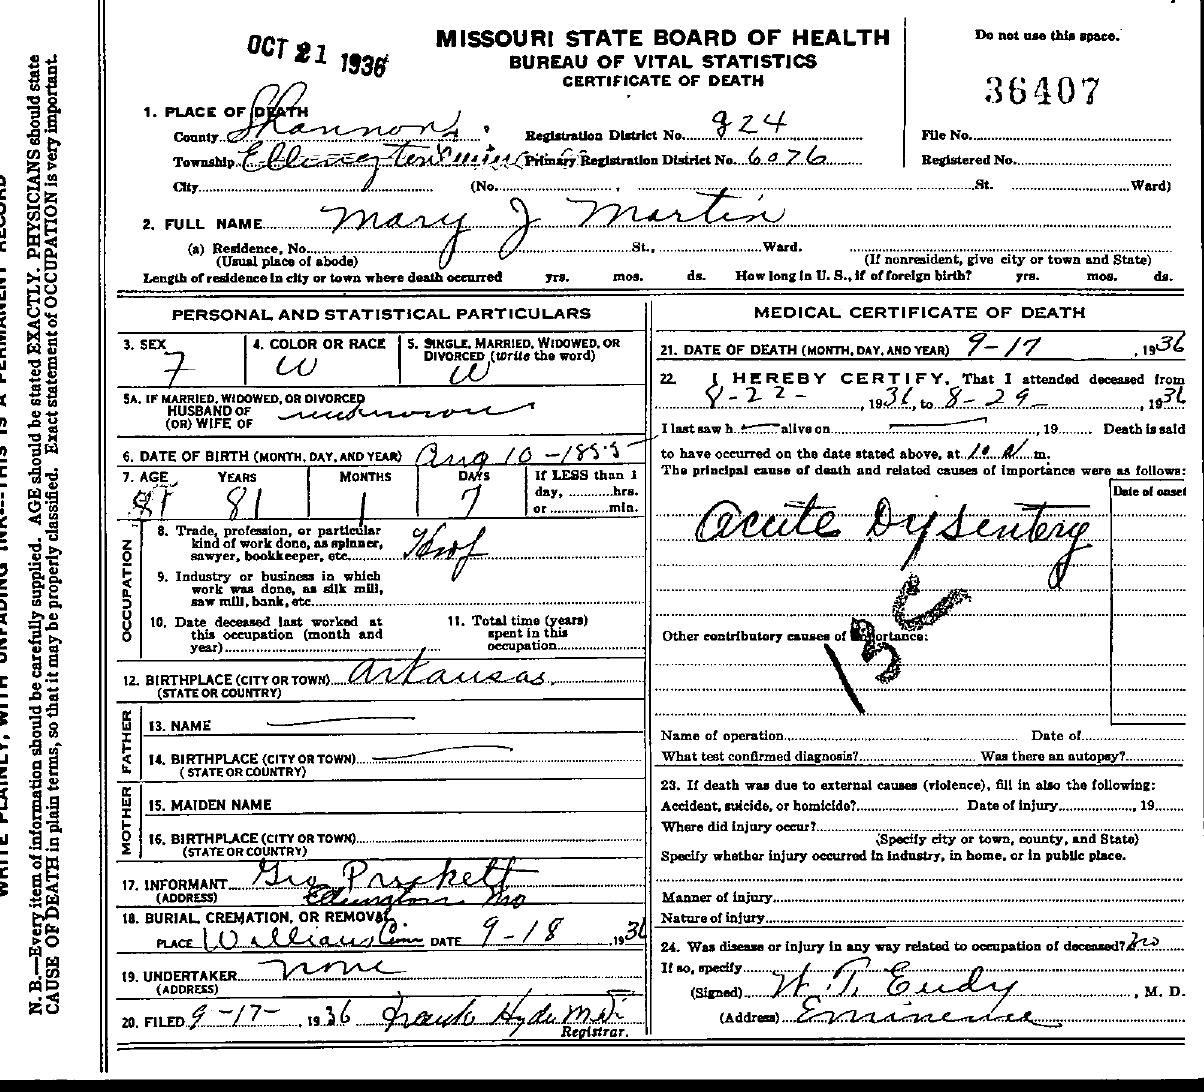 OCT 21 1936
MISSOURI STATE BOARD OF HEALTH
BUREAU OF VITAL STATISTICS
CERTIFICATE OF DEATH
Do not use this space.
36407
1. PLACE OF DEATH
County Shannon
Registration District No. 824
File No.
Township Ellington
Primary Registration District No. 6076
Registered No.
City (No. , St. Ward)
2. FULL NAME Mary J Martin
(a) Residence, No. St., Ward.
(Usual place of abode) (If nonresident, give city or town and State)
Length of residence in city or town where death occurred yrs. mos. ds. How long in U. S., if of foreign birth? yrs. mos. ds.
PERSONAL AND STATISTICAL PARTICULARS
3. SEX F
4. COLOR OR RACE W
5. SINGLE, MARRIED, WIDOWED, OR DIVORCED (write the word) W
5A. IF MARRIED, WIDOWED, OR DIVORCED
HUSBAND OF
(OR) WIFE OF unknown
6. DATE OF BIRTH (MONTH, DAY, AND YEAR) Aug 10 - 1855
7. AGE YEARS MONTHS DAYS If LESS than 1
81 81 1 7 day, hrs.
or min.
OCCUPATION
8. Trade, profession, or particular
kind of work done, as spinner,
sawyer, bookkeeper, etc.
9. Industry or business in which
work was done, as silk mill,
saw mill, bank, etc.
10. Date deceased last worked at
this occupation (month and
year)
11. Total time (years)
spent in this
occupation
12. BIRTHPLACE (CITY OR TOWN) Arkansas
(STATE OR COUNTRY)
FATHER
13. NAME
14. BIRTHPLACE (CITY OR TOWN)
(STATE OR COUNTRY)
MOTHER
15. MAIDEN NAME
16. BIRTHPLACE (CITY OR TOWN)
(STATE OR COUNTRY)
17. INFORMANT Geo Pruckett
(ADDRESS) Ellington Mo
18. BURIAL, CREMATION, OR REMOVAL
PLACE Williams Cem DATE 9-18 , 1936
19. UNDERTAKER none
(ADDRESS)
20. FILED 9-17- , 1936 Frank Hyde M.D.
Registrar.
MEDICAL CERTIFICATE OF DEATH
21. DATE OF DEATH (MONTH, DAY, AND YEAR) 9-17 , 1936
22. I HEREBY CERTIFY, That I attended deceased from
8-22- , 1936, to 8-29 , 1936
I last saw h alive on , 19 Death is said
to have occurred on the date stated above, at 10 m.
The principal cause of death and related causes of importance were as follows:
Date of onset
Acute Dysentery
Other contributory causes of importance:
Name of operation Date of
What test confirmed diagnosis? Was there an autopsy?
23. If death was due to external causes (violence), fill in also the following:
Accident, suicide, or homicide? Date of injury , 19
Where did injury occur?
(Specify city or town, county, and State)
Specify whether injury occurred in industry, in home, or in public place.
Manner of injury
Nature of injury
24. Was disease or injury in any way related to occupation of deceased? No
If so, specify
(Signed) W. T. Eudy , M. D.
(Address) Eminence
WRITE PLAINLY, WITH UNFADING INK---THIS IS A PERMANENT RECORD
N. B.—Every item of information should be carefully supplied. AGE should be stated EXACTLY. PHYSICIANS should state
CAUSE OF DEATH in plain terms, so that it may be properly classified. Exact statement of OCCUPATION is very important.